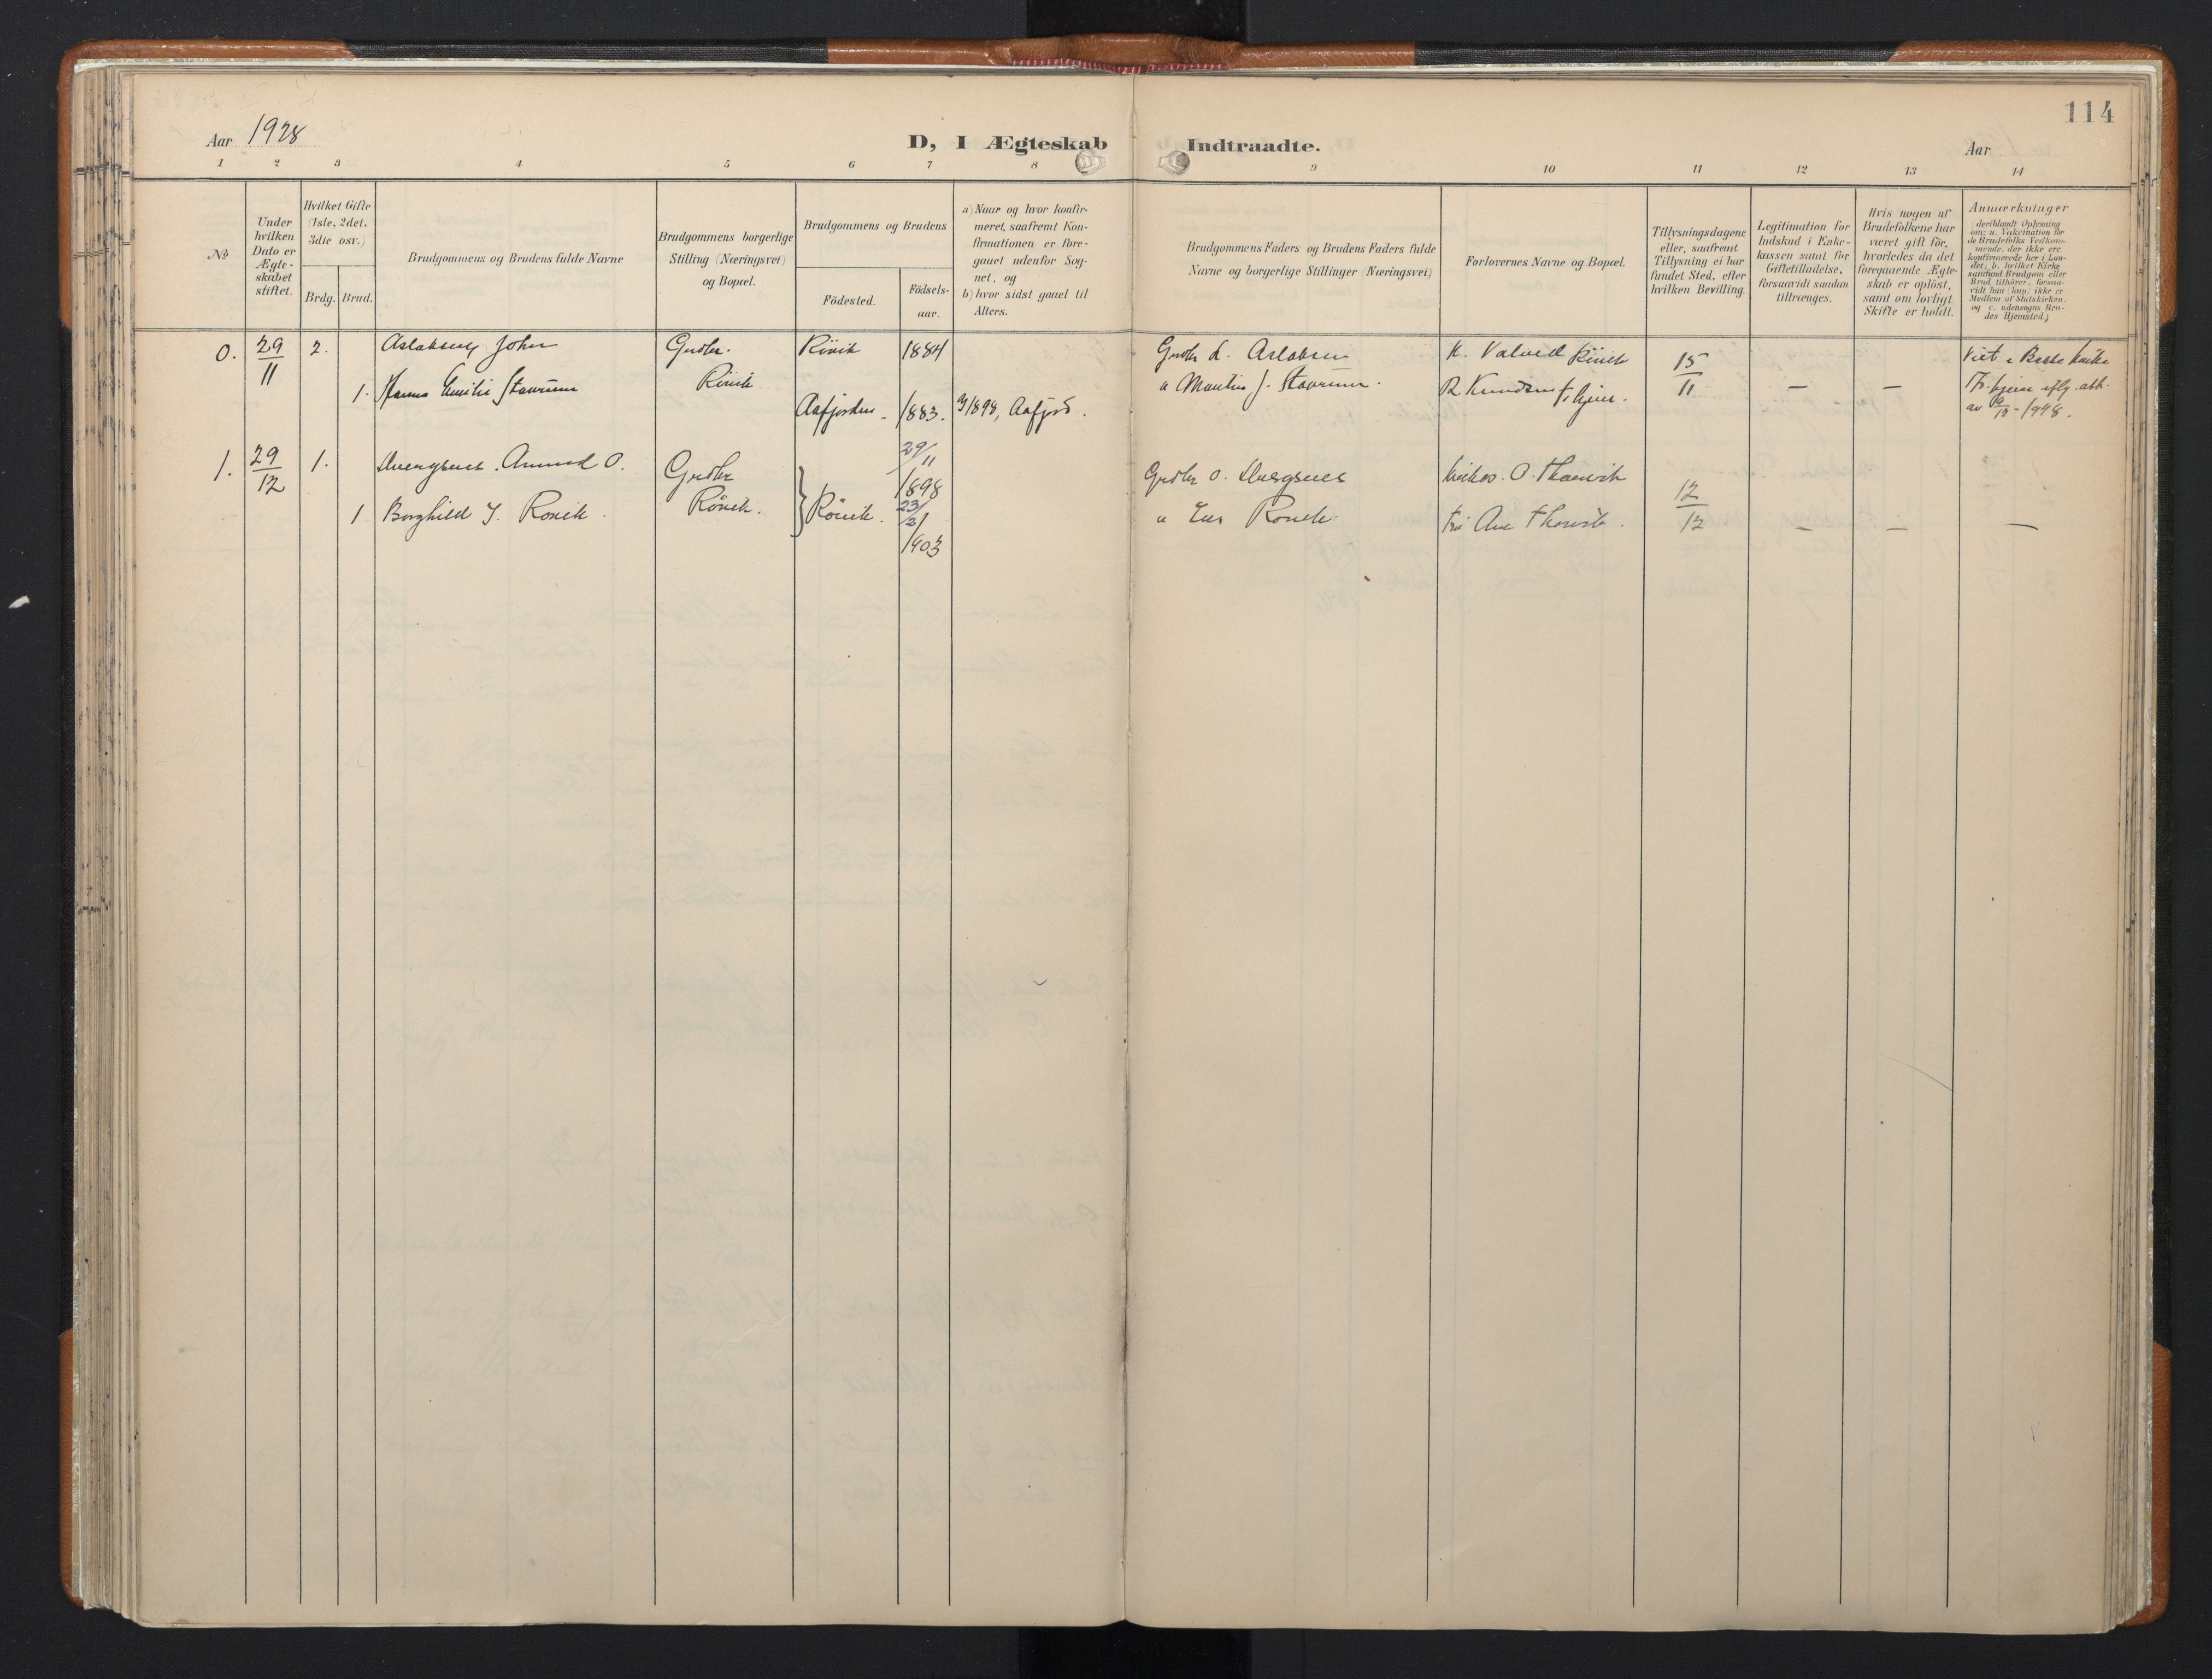 114
Aar 1928
D, I Ægteskab Indtraadte.
Aar
1 2 3 4 5 6 7 8 9 10 11 12 13 14
№
Under hvilken Dato er Ægte-skabet stiftet.
Hvilket Gifte (1ste, 2det, 3die osv.)
Brdg. Brud.
Brudgommens og Brudens fulde Navne
Brudgommens borgerlige Stilling (Næringsvei) og Bopæl.
Brudgommens og Brudens
Födested.
Födsels-aar.
a) Naar og hvor konfir-meret, saafremt Kon-firmationen er fore-gaaet udenfor Sog-net, og
b) hvor sidst gaaet til Alters.
Brudgommens Faders og Brudens Faders fulde Navne og borgerlige Stillinger (Næringsvei)
Forlovernes Navne og Bopæl.
Tillysningsdagene eller, saafremt Tillysning ei har fundet Sted, efter hvilken Bevilling.
Legitimation for Indskud i Enke-kassen samt for Giftetilladelse, forsaavidt saadan tiltrænges.
Hvis nogen af Brudefolkene har været gift för, hvorledes da det foregaaende Ægte-skab er oplöst, samt om lovligt Skifte er holdt.
Anmærkninger
deriblandt Oplysning om: a. Vakcination for de Brudefolks Vedkom-mende, der ikke ere konfirmerede her i Lan-det; b. hvilket Kirke samfund Brudgom eller Brud tilhörer, forsaa-vidt han (hun) ikke er Medlem af Statskirken, og c. udensogns Bru-des Hjemsted.)
0. 29/11 2. Aslaksen John Grdbr. Rönik 1884 Grdbr L. Aslaksen K. Rönik 15/11
1. Hanna Emilie Stavrum Rönik Aafjorden 1883. 1898, Aafjord. " Mautin J. Stavrum. R Knudsen – –
Viet i
av 1928.
1. 29/12 1. Amund O. Grdbr 29/11 1898 Grdbr O. O. Thorvik 12/12
1 Borghild J. Rönik Rönik. } Rönik. 23/2 1903 " Rönik. – – –